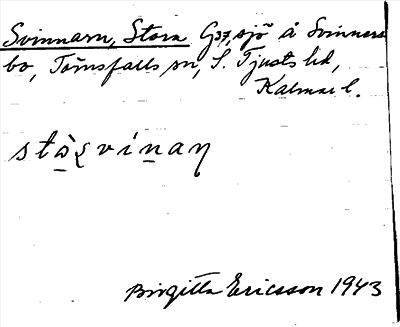 Svinnarn, Stora G37, sjö å Svinners
bo, Törnsfalls sn, S. Tjusts hd,
Kalmar l.
stà̱ꝛvíṉaƞ
Birgitta Ericsson 1943